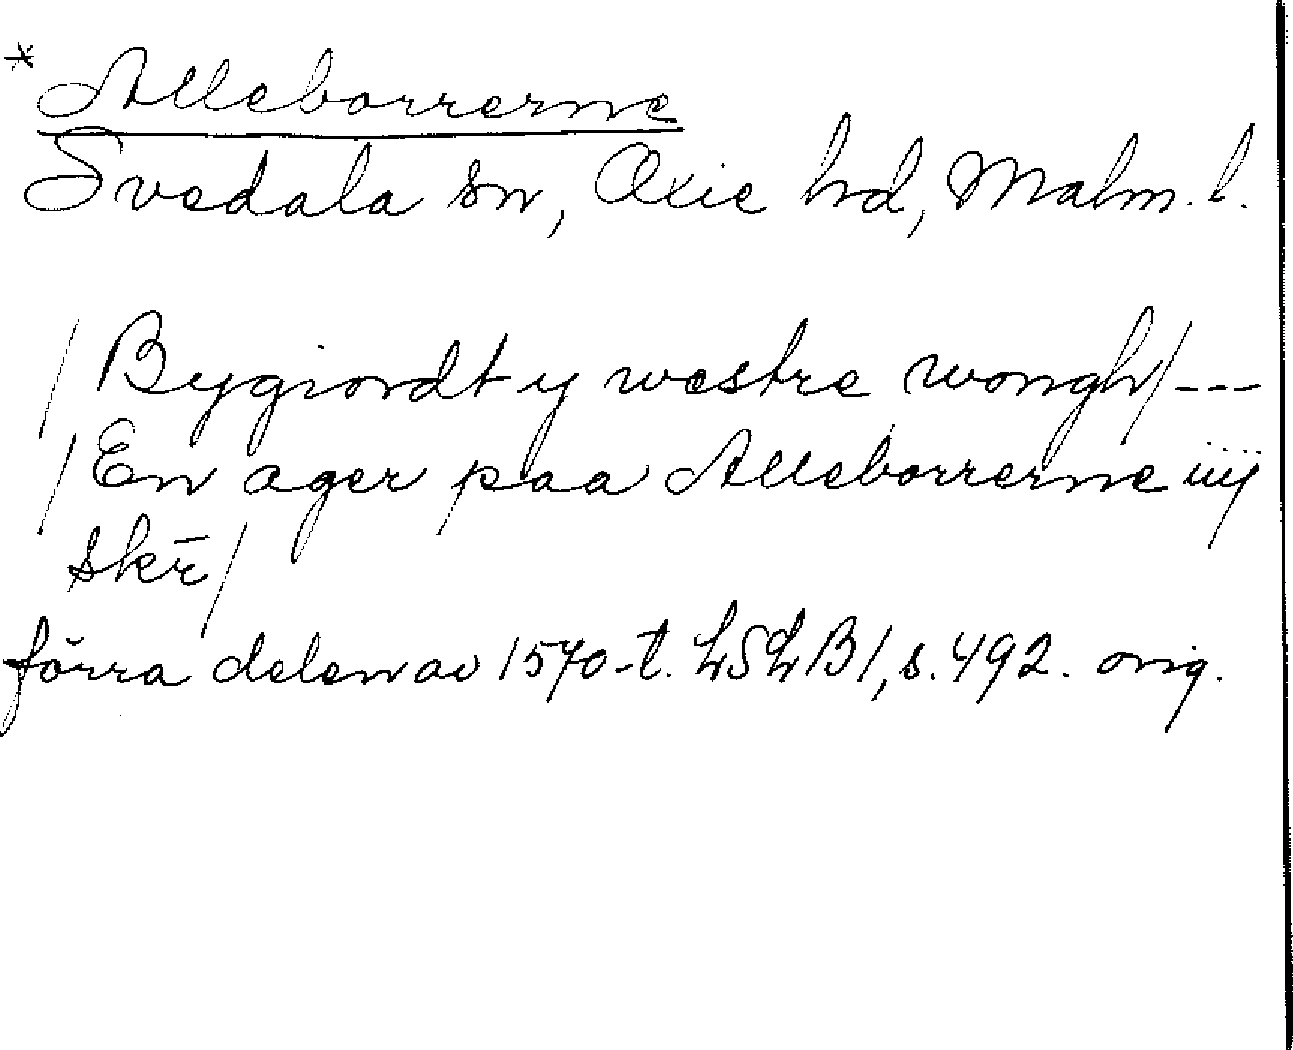 * Alleborrerne
Svedala sn, Oxie hd, Malm. l.
/ Bygiordt y westre wongh / ---
/ En ager paa Alleborrerne iiij
skr̄ /
förra delen av 1570-t. LSLB1, s. 492. orig.